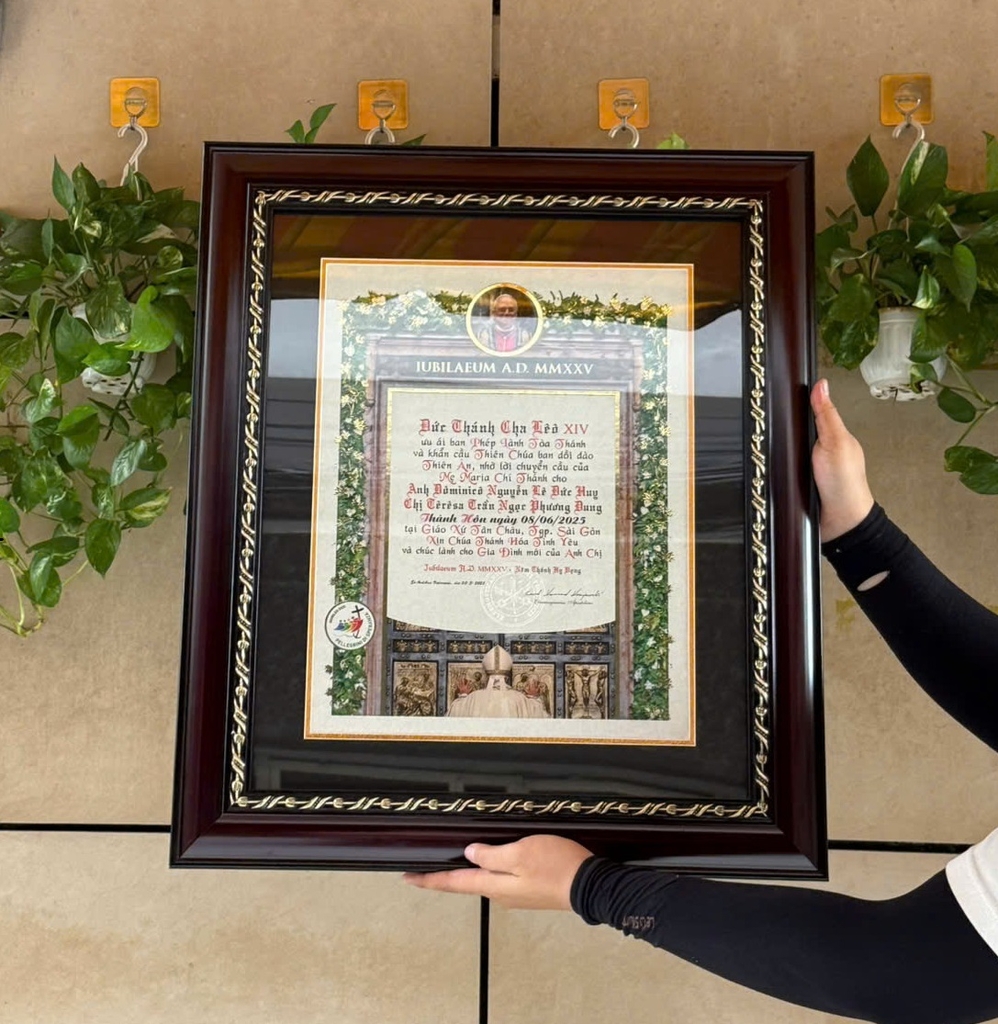 IUBILAEUM A.D. MMXXV
Đức Thánh Cha Lêô XIV
ưu ái ban Phép lành Tòa Thánh
và khẩn cầu Thiên Chúa ban dồi dào
Thiên Ân, nhờ lời chuyển cầu của
Mẹ Maria Chí Thánh cho
Anh Đôminicô Nguyễn Lê Đức Huy
Chị Têrêsa Trần Ngọc Phương Dung
Thành Hôn ngày 08/06/2025
tại Giáo Xứ Tân Châu, Tgp. Sài Gòn
Xin Chúa Thánh Hóa Tình Yêu
và chúc lành cho Gia Đình mới của Anh Chị
Iubilaeum A.D. MMXXV - Năm Thánh Hy Vọng